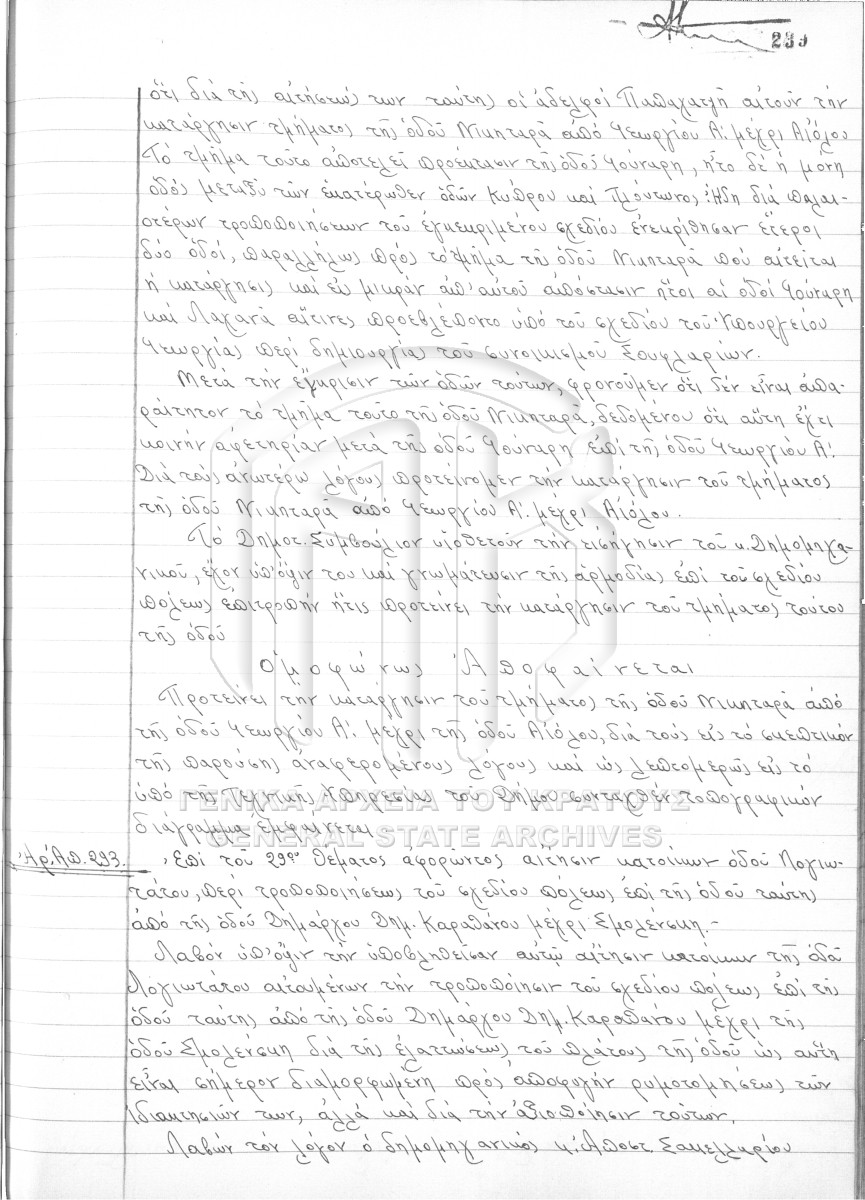 239
ὅτι διά τῆς αἰτήσεώς των ταύτης οἱ ἀδελφοί Παπαχατζῆ αἰτοῦν τήν
κατάργησιν τμήματος τῆς ὁδοῦ Νικηταρᾶ ἀπό Γεωργίου Α΄. μέχρι Αἰόλου
Τό τμῆμα τοῦτο ἀποτελεῖ προέκτασιν τῆς ὁδοῦ Γούναρη, ἦτο δέ ἡ μόνη
ὁδός μεταξύ τῶν ἑκατέρωθεν ὁδῶν Κύπρου καί Πλούτωνος. Ἤδη διά παλαι-
οτέρων τροποποιήσεων τοῦ ἐγκεκριμένου σχεδίου ἐνεκρίθησαν ἕτεροι
δύο ὁδοί, παραλλήλως πρός τό τμῆμα τῆς ὁδοῦ Νικηταρᾶ πού αἰτεῖται
ἡ κατάργησις καί εἰς μικράν ἀπ' αὐτοῦ ἀπόστασιν ἤτοι αἱ ὁδοί Γούναρη
καί Λαχανᾶ αἵτινες προεβλέποντο ὑπό τοῦ σχεδίου τοῦ Ὑπουργείου
Γεωργίας περί δημιουργίας τοῦ συνοικισμοῦ Σουφλαρίων.
Μετά τήν ἔγκρισιν τῶν ὁδῶν τούτων, φρονοῦμεν ὅτι δέν εἶναι ἀπα-
ραίτητον τό τμῆμα τοῦτο τῆς ὁδοῦ Νικηταρᾶ, δεδομένου ὅτι αὕτη ἔχει
κοινήν ἀφετηρίαν μετά τῆς ὁδοῦ Γούναρη ἐπί τῆς ὁδοῦ Γεωργίου Α΄.
Διά τούς ἀνωτέρω λόγους προτείνομεν τήν κατάργησιν τοῦ τμήματος
τῆς ὁδοῦ Νικηταρᾶ ἀπό Γεωργίου Α΄. μέχρι Αἰόλου.
Τό Δημοτ. Συμβούλιον υἱοθετοῦν τήν εἰσήγησιν τοῦ κ. Δημομηχα-
νικοῦ, ἔχον ὑπ' ὄψιν του καί γνωμάτευσιν τῆς ἁρμοδίας ἐπί τοῦ σχεδίου
πόλεως ἐπιτροπήν ἥτις προτείνει τήν κατάργησιν τοῦ τμήματος τούτου
τῆς ὁδοῦ
Ὁμοφώνως Ἀποφαίνεται
Προτείνει τήν κατάργησιν τοῦ τμήματος τῆς ὁδοῦ Νικηταρᾶ ἀπό
τῆς ὁδοῦ Γεωργίου Α΄. μέχρι τῆς ὁδοῦ Αἰόλου, διά τούς εἰς τό σκεπτικόν
τῆς παρούσης ἀναφερομένους λόγους καί ὡς λεπτομερῶς εἰς τό
ὑπό τῆς Τεχνικῆς Ὑπηρεσίας τοῦ Δήμου συνταχθέν τοπογραφικόν
ΓΕΝΙΚΑ ΑΡΧΕΙΑ ΤΟΥ ΚΡΑΤΟΥΣ
διάγραμμα ἐμφαίνεται
GENERAL STATE ARCHIVES
Ἀρ. Ἀπ. 293.
Ἐπί τοῦ 29ου θέματος ἀφορῶντος αἴτησιν κατοίκων ὁδοῦ Λογιω-
τάτου, περί τροποποιήσεως τοῦ σχεδίου πόλεως ἐπί τῆς ὁδοῦ ταύτης
ἀπό τῆς ὁδοῦ Δημάρχου Δημ. Καραθάνου μέχρι Σμολένσκη.-
Λαβόν ὑπ' ὄψιν τήν ὑποβληθεῖσαν αὐτῷ αἴτησιν κατοίκων τῆς ὁδοῦ
Λογιωτάτου αἰτουμένων τήν τροποποίησιν τοῦ σχεδίου πόλεως ἐπί τῆς
ὁδοῦ ταύτης ἀπό τῆς ὁδοῦ Δημάρχου Δημ. Καραθάνου μέχρι τῆς
ὁδοῦ Σμολένσκη διά τῆς ἐλαττώσεως τοῦ πλάτους τῆς ὁδοῦ ὡς αὕτη
εἶναι σήμερον διαμορφωμένη πρός ἀποφυγήν ρυμοτομήσεως τῶν
ἰδιοκτησιῶν των, ἀλλά καί διά τήν ἀξιοποίησιν τούτων.
Λαβών τόν λόγον ὁ δημομηχανικός κ. Ἀποστ. Σακελλαρίου